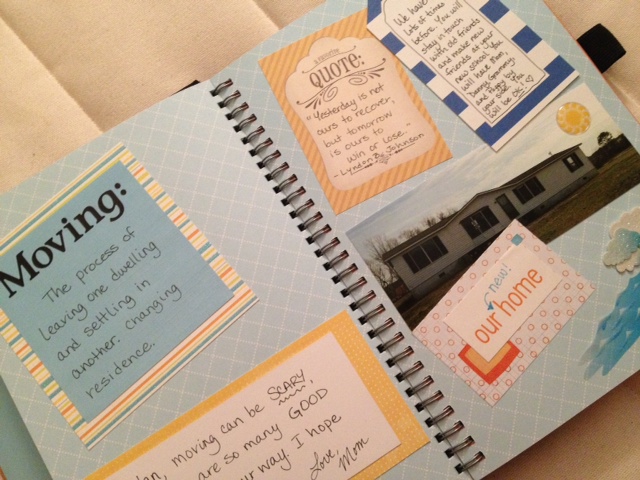 Moving:
The process of
leaving one dwelling
and settling in
another. Changing
residence.
moving can be SCARY,
are so many GOOD
way. I hope
Love, Mom
a favorite
QUOTE:
"Yesterday is not
ours to recover,
but tomorrow
is ours to
win or lose."
- Lyndon B. Johnson
We have
lots of times
before. You will
stay in touch
with old friends
and make new
friends at your
new school. You
will have Mom,
Grammy,
and Pappy by
your side. You
will be OK!
new!
our home